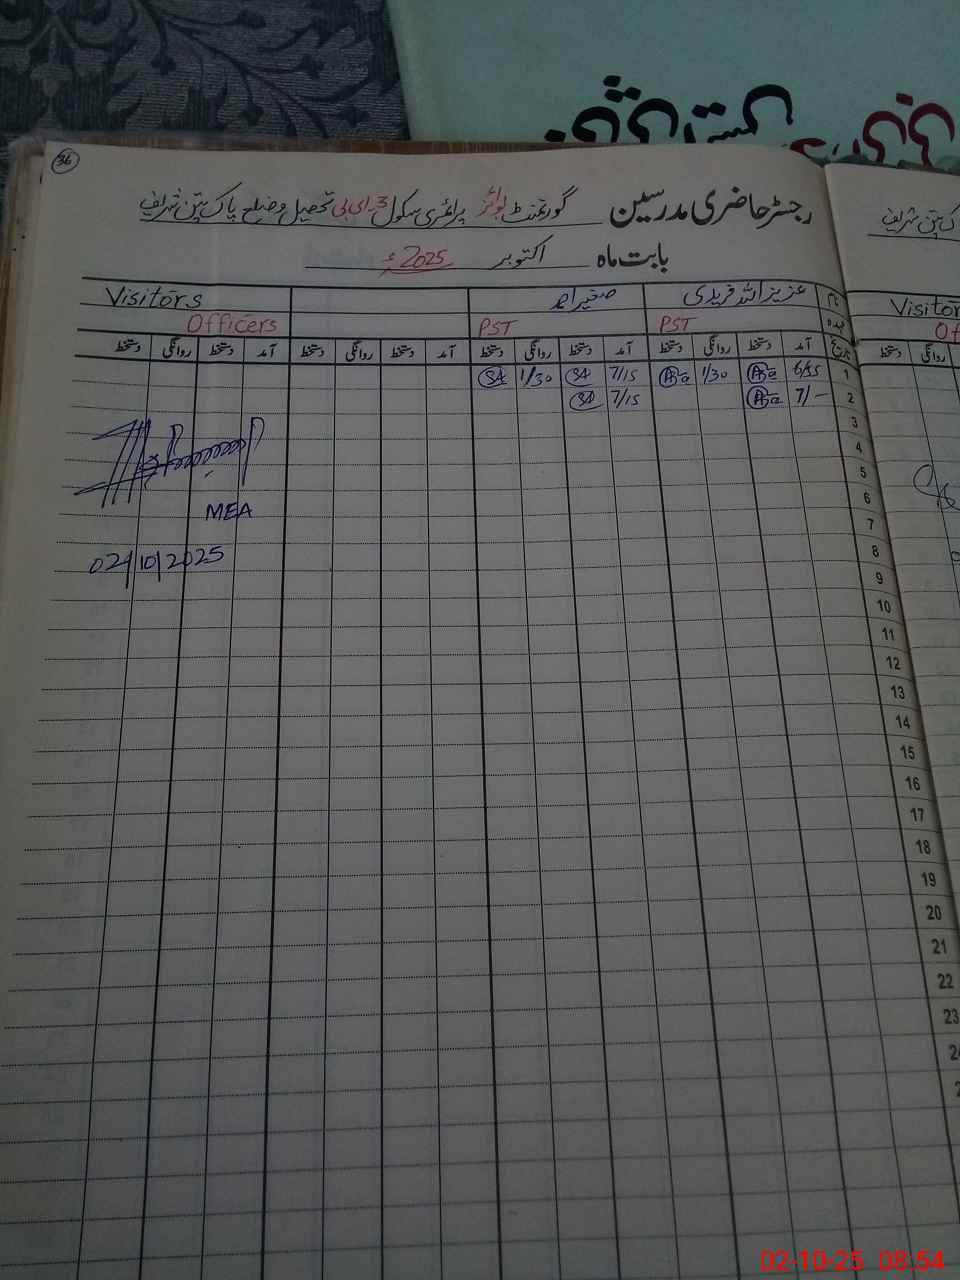 36
رجسٹر حاضری مدرسین گورنمنٹ بوائز پرائمری سکول 3.ای بی تحصیل و ضلع پاک پتن شریف
بابت ماہ اکتوبر 2025ء
نام عزیز اللہ فریدی صغیر احمد Visitors
عہدہ PST PST Officers
تاریخ آمد دستخط روانگی دستخط آمد دستخط روانگی دستخط آمد دستخط روانگی دستخط آمد دستخط روانگی دستخط
1 6/55 1/30 7/15 SA 1/30 SA
2 7/- 7/15 SA
3
4
5
6
MEA
7
8
02/10/2025
9
10
11
12
13
14
15
16
17
18
19
20
21
22
23
پتن شریف
Visitor
Of
روانگی دستخط
02-10-25 08:54